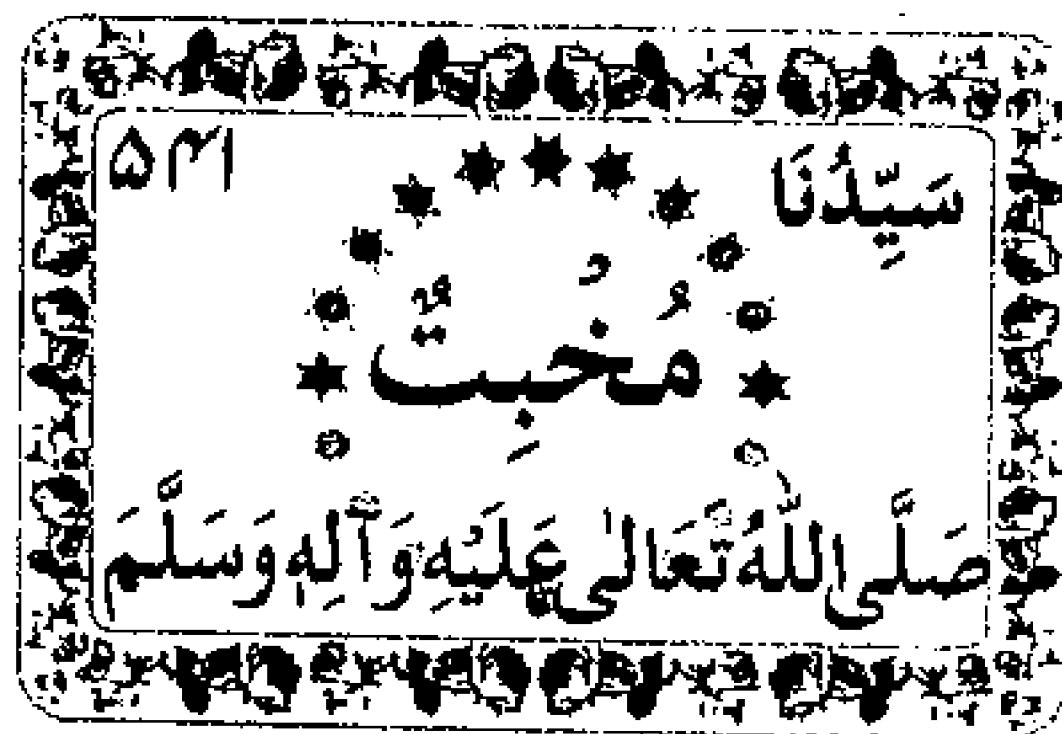 سَيِّدُنَا
مُخْبِتٌ
صَلَّى اللّٰهُ تَعَالٰى عَلَيْهِ وَآلِهٖ وَسَلَّمَ